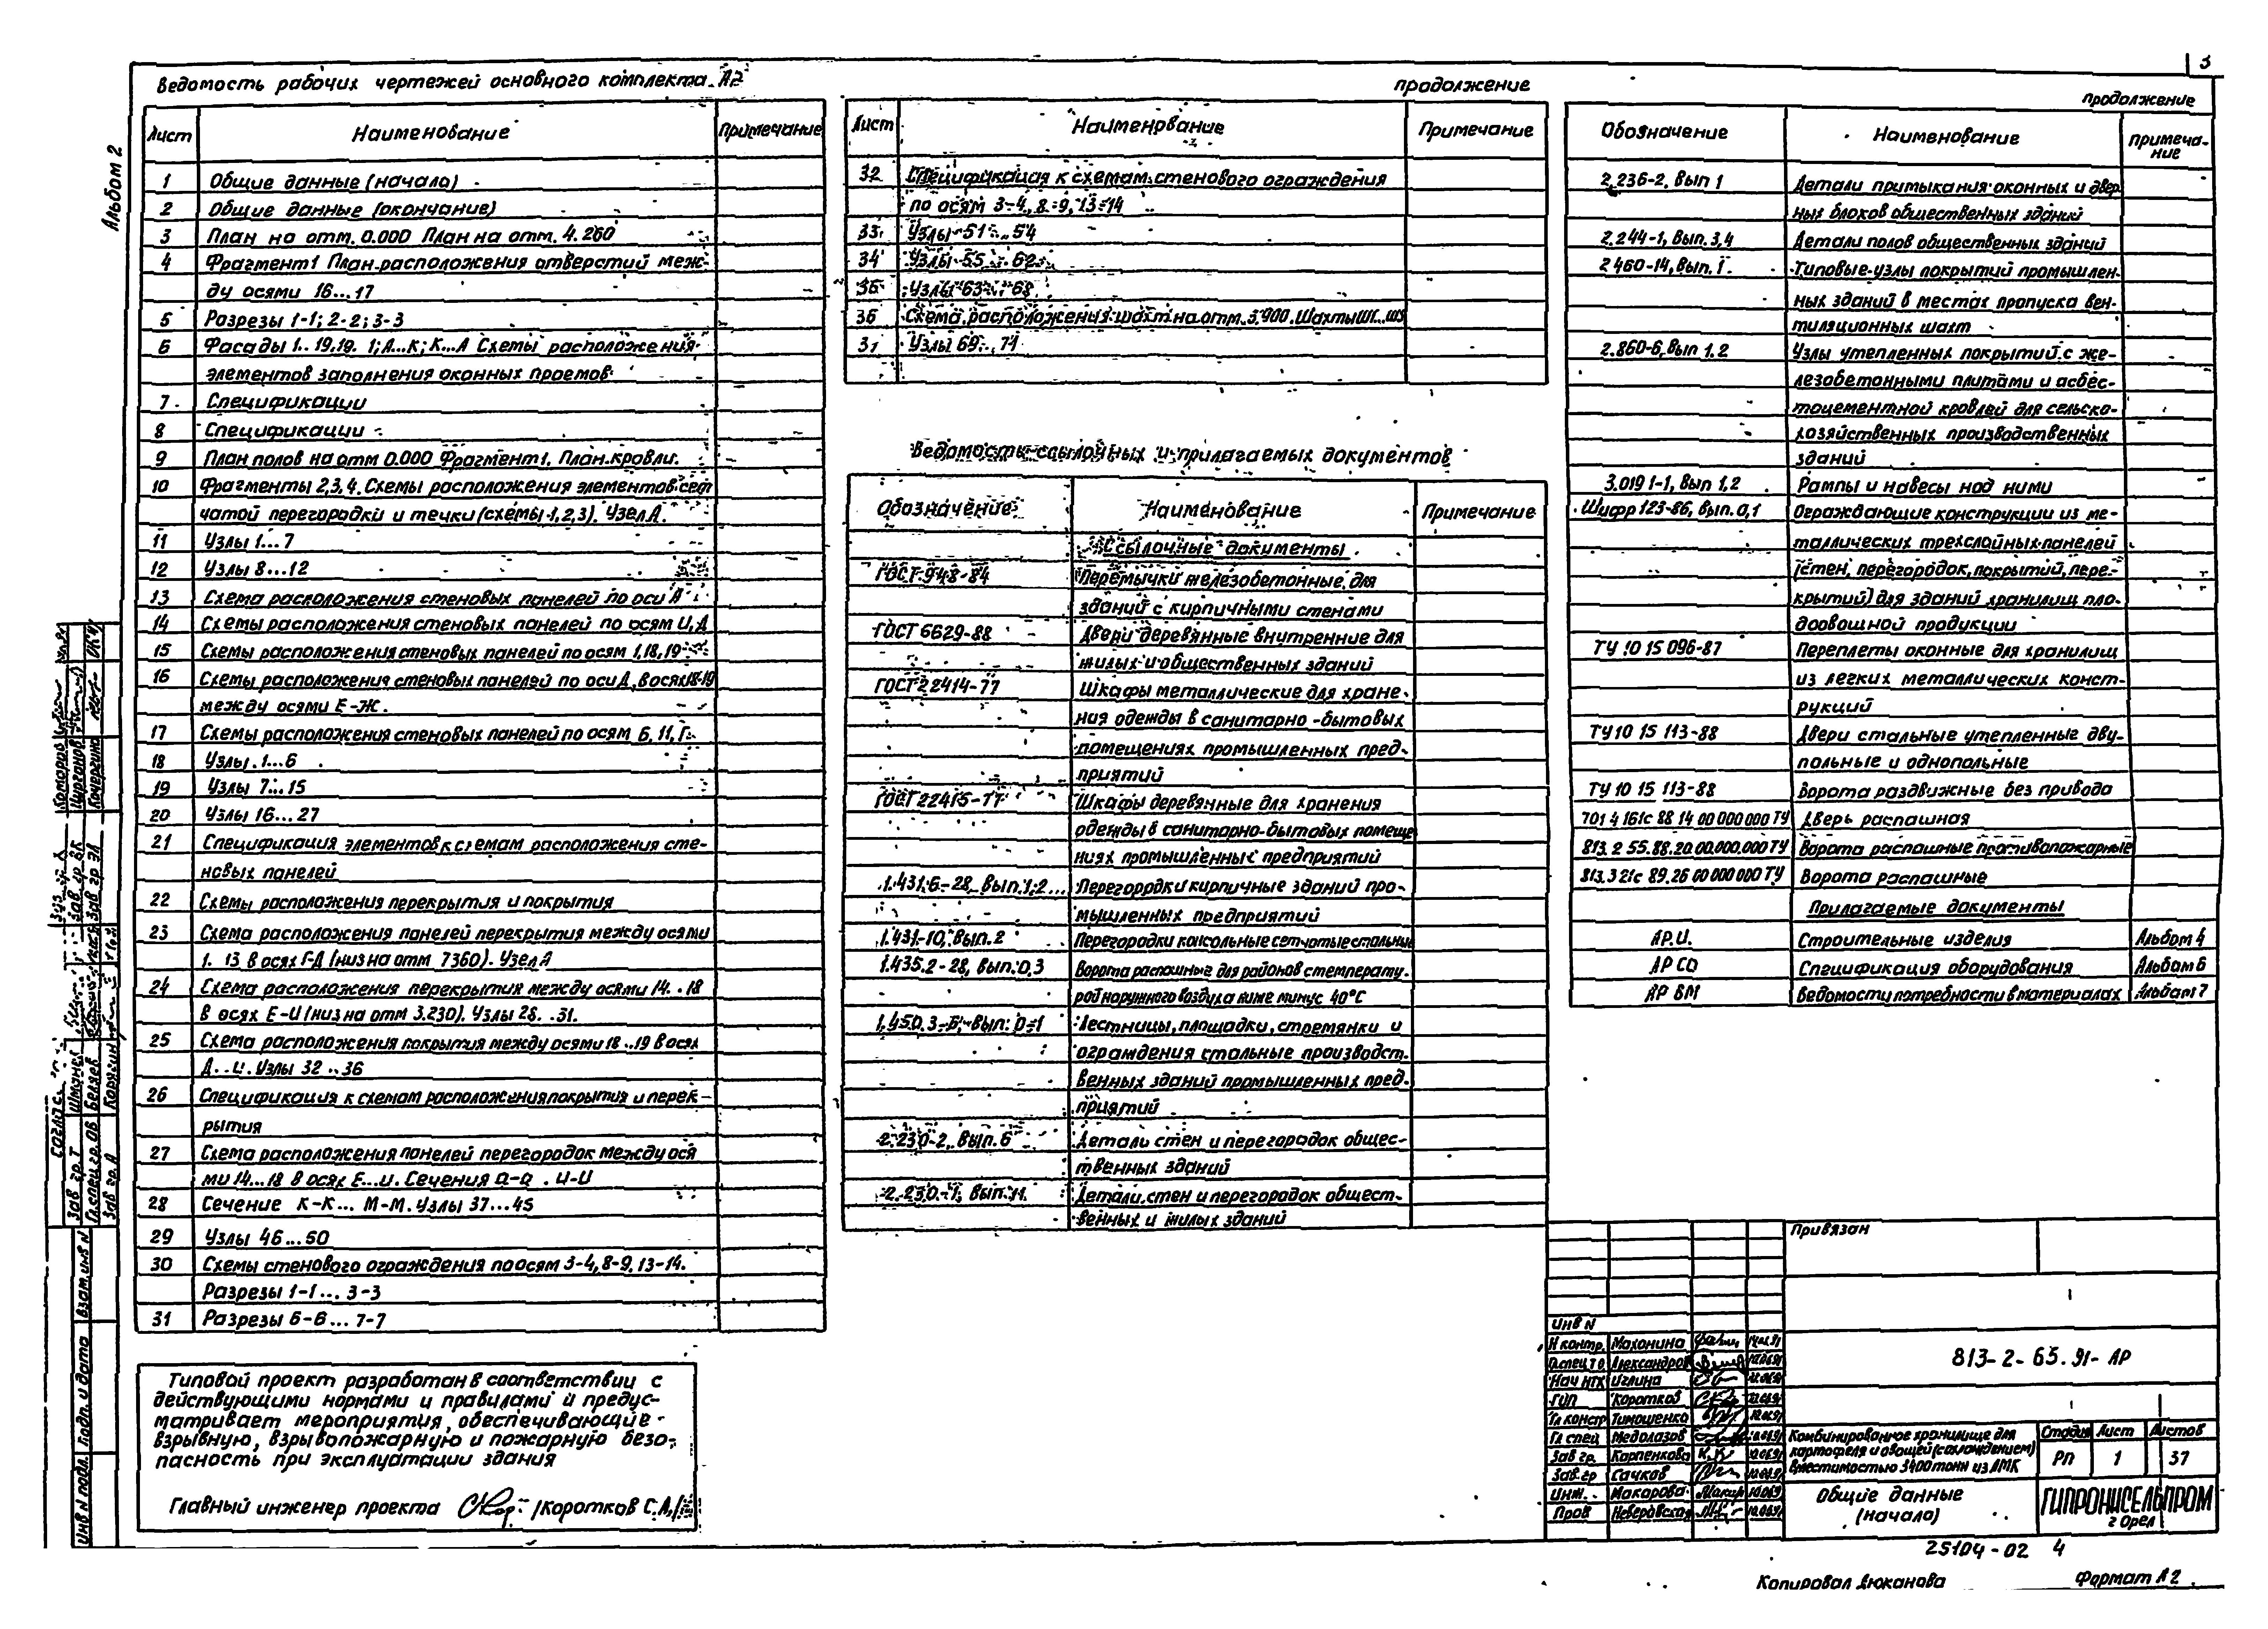 3
Альбом 2
Ведомость рабочих чертежей основного комплекта АР
Лист Наименование Примечание
1 Общие данные (начало)
2 Общие данные (окончание)
3 План на отм. 0.000 План на отм. 4.260
4 Фрагмент 1 План расположения отверстий меж-
ду осями 16...17
5 Разрезы 1-1; 2-2; 3-3
6 Фасады 1..19, 19..1; А...К; К...А Схемы расположения
элементов заполнения оконных проемов
7 Спецификации
8 Спецификации
9 План полов на отм 0.000 Фрагмент 1. План кровли.
10 Фрагменты 2,3,4. Схемы расположения элементов сет
чатой перегородки и течки (схемы 1,2,3). Узел А.
11 Узлы 1...7
12 Узлы 8...12
13 Схема расположения стеновых панелей по оси А
14 Схемы расположения стеновых панелей по осям И, Д
15 Схемы расположения стеновых панелей по осям 1,18,19
16 Схемы расположения стеновых панелей по оси Д, в осях 18-19
между осями Е-Ж.
17 Схемы расположения стеновых панелей по осям Б, 11, Г
18 Узлы 1...6
19 Узлы 7...15
20 Узлы 16...27
21 Спецификация элементов к схемам расположения сте-
новых панелей
22 Схемы расположения перекрытия и покрытия
23 Схема расположения панелей перекрытия между осями
1. 13 в осях Г-Д (низ на отм 7360). Узел А
24 Схема расположения перекрытия между осями 14..18
в осях Е-И (низ на отм 3.230). Узлы 28..31.
25 Схема расположения покрытия между осями 18..19 в осях
Д..И. Узлы 32..36
26 Спецификация к схемам расположения покрытия и перек-
рытия
27 Схема расположения панелей перегородок между ося
ми 14...18 в осях Е...И. Сечения а-а . И-И
28 Сечение К-К... М-М. Узлы 37...45
29 Узлы 46...50
30 Схемы стенового ограждения по осям 3-4, 8-9, 13-14.
Разрезы 1-1... 3-3
31 Разрезы 6-6... 7-7
Типовой проект разработан в соответствии с
действующими нормами и правилами и предус-
матривает мероприятия, обеспечивающие
взрывную, взрывопожарную и пожарную безо-
пасность при эксплуатации здания
Главный инженер проекта /Коротков С.А./
продолжение
Лист Наименование Примечание
32 Спецификация к схемам стенового ограждения
по осям 3-4, 8-9, 13-14
33 Узлы 51...54
34 Узлы 55...62
35 Узлы 63...68
36 Схема расположения шахт на отм. 3.900. Шахты
37 Узлы 69...71
Ведомость ссылочных и прилагаемых документов
Обозначение Наименование Примечание
Ссылочные документы
ГОСТ 948-84 Перемычки железобетонные для
зданий с кирпичными стенами
ГОСТ 6629-88 Двери деревянные внутренние для
жилых и общественных зданий
ГОСТ 22414-77 Шкафы металлические для хране-
ния одежды в санитарно-бытовых
помещениях промышленных пред-
приятий
ГОСТ 22415-77 Шкафы деревянные для хранения
одежды в санитарно-бытовых помеще
ниях промышленных предприятий
1.431.6-28, вып. 1,2... Перегородки кирпичные зданий про-
мышленных предприятий
1.431-10, вып. 2 Перегородки консольные сетчатые стальные
1.435.2-28, вып. 0,3 Ворота распашные для районов с температу-
рой наружного воздуха ниже минус 40°С
1.450.3-6, вып. 0-1 Лестницы, площадки, стремянки и
ограждения стальные производст-
венных зданий промышленных пред-
приятий
2.230-2, вып. 6 Деталь стен и перегородок общес-
твенных зданий
2.230-1, вып. 11. Детали стен и перегородок общест-
венных и жилых зданий
продолжение
Обозначение Наименование Примеча-
ние
2.236-2, Вып 1 Детали примыкания оконных и двер
ных блоков общественных зданий
2.244-1, Вып. 3,4 Детали полов общественных зданий
2 460-14, Вып. 1. Типовые узлы покрытий промышлен-
ных зданий в местах пропуска вен-
тиляционных шахт
2.860-6, Вып 1.2 Узлы утепленных покрытий с же-
лезобетонными плитами и асбес-
тоцементной кровлей для сельско-
хозяйственных производственных
зданий
3.019 1-1, вып 1,2 Рампы и навесы над ними
Шифр 123-86, вып. 0,1 Ограждающие конструкции из ме-
таллических трехслойных панелей
(стен, перегородок, покрытий, пере-
крытий) для зданий хранилищ пло-
доовощной продукции
ТУ 10 15 096-87 Переплеты оконные для хранилищ
из легких металлических конст-
рукций
ТУ 10 15 113-88 Двери стальные утепленные дву-
польные и однопольные
ТУ 10 15 113-88 Ворота раздвижные без привода
701 4 161с 88 14 00 000 000 ТУ Дверь распашная
813.2 55.88.20.00.000.000 ТУ Ворота распашные противопожарные
813.3 21с 89.26 00 000 000 ТУ Ворота распашные
Прилагаемые документы
АР.И. Строительные изделия Альбом 4
АР СО Спецификация оборудования Альбом 6
АР ВМ Ведомости потребности в материалах Альбом 7
Привязан
Инв N
Н контр. Махонина
Гл.спец ТО Александров
Нач НТК Иглина
ГИП Коротков
Гл констр Тимошенко
Гл спец Медолазов
Зав гр. Карпенкова
Зав. гр Сачков
Инж. Макарова
Пров Неверовская
813-2-65.91-АР
Комбинированное хранилище для
картофеля и овощей (с охлаждением)
вместимостью 3400 тонн из ЛМК
Стадия Лист Листов
РП 1 37
Общие данные
(начало)
ГИПРОНИСЕЛЬПРОМ
г Орел
25104-02 4
Копировал Дюканова Формат А2
Зав гр. Т Шманев
Гл. спец гр. ОВ Беляев
Зав гр. А Корягин
Зав гр ВК Цурганов
Зав гр ЭЛ Кочергина
Комаров
Инв N подл. Подп. и дата Взам. инв N